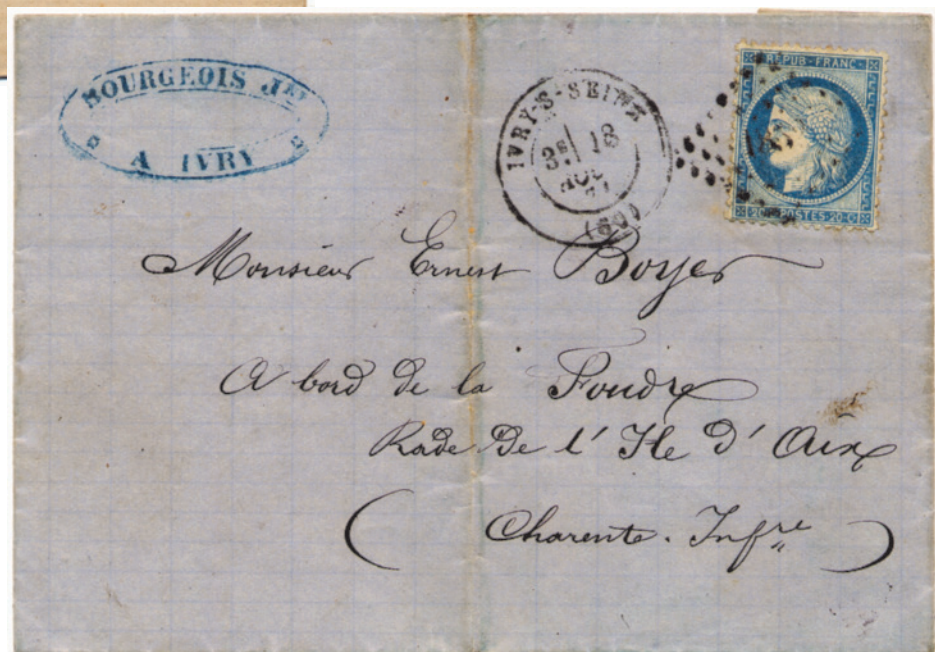 BOURGEOIS Jne
A IVRY
IVRY-S-SEINE
3E 18
AOU
71
(60)
REPUB-FRANC-
20 c POSTES-20-C
Monsieur Ernest Boyer
A bord de la Foudre
Rade De l' Ile D' Aix
( Charente. Infre )